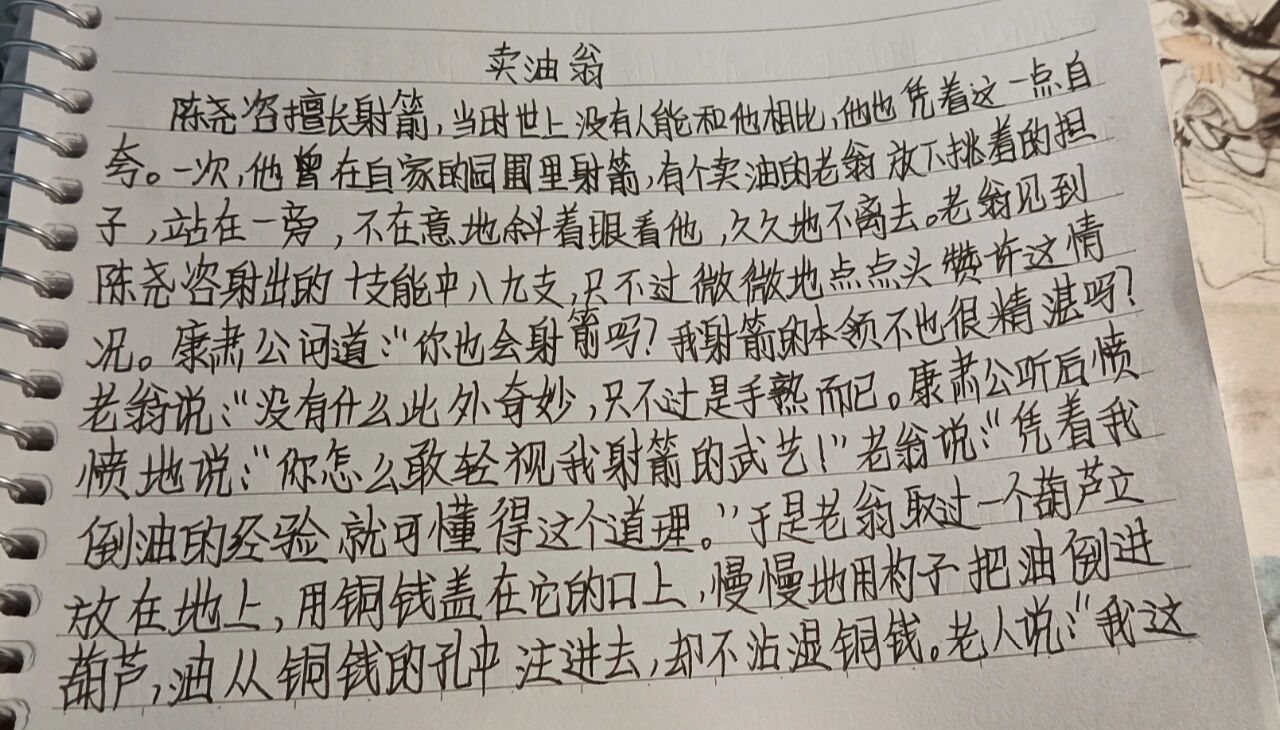 卖油翁
陈尧咨擅长射箭，当时世上没有人能和他相比，他也凭着这一点自
夸。一次，他曾在自家的园圃里射箭，有个卖油的老翁放下挑着的担
子，站在一旁，不在意地斜着眼看他，久久地不离去。老翁见到
陈尧咨射出的十支能中八九支，只不过微微地点点头赞许这情
况。康肃公问道：“你也会射箭吗？我射箭的本领不也很精湛吗？
老翁说：“没有什么此外奇妙，只不过是手熟而已。康肃公听后愤
愤地说：“你怎么敢轻视我射箭的武艺！”老翁说：“凭着我
倒油的经验就可懂得这个道理。”于是老翁取过一个葫芦立
放在地上，用铜钱盖在它的口上，慢慢地用杓子把油倒进
葫芦，油从铜钱的孔中注进去，却不沾湿铜钱。老人说：“我这